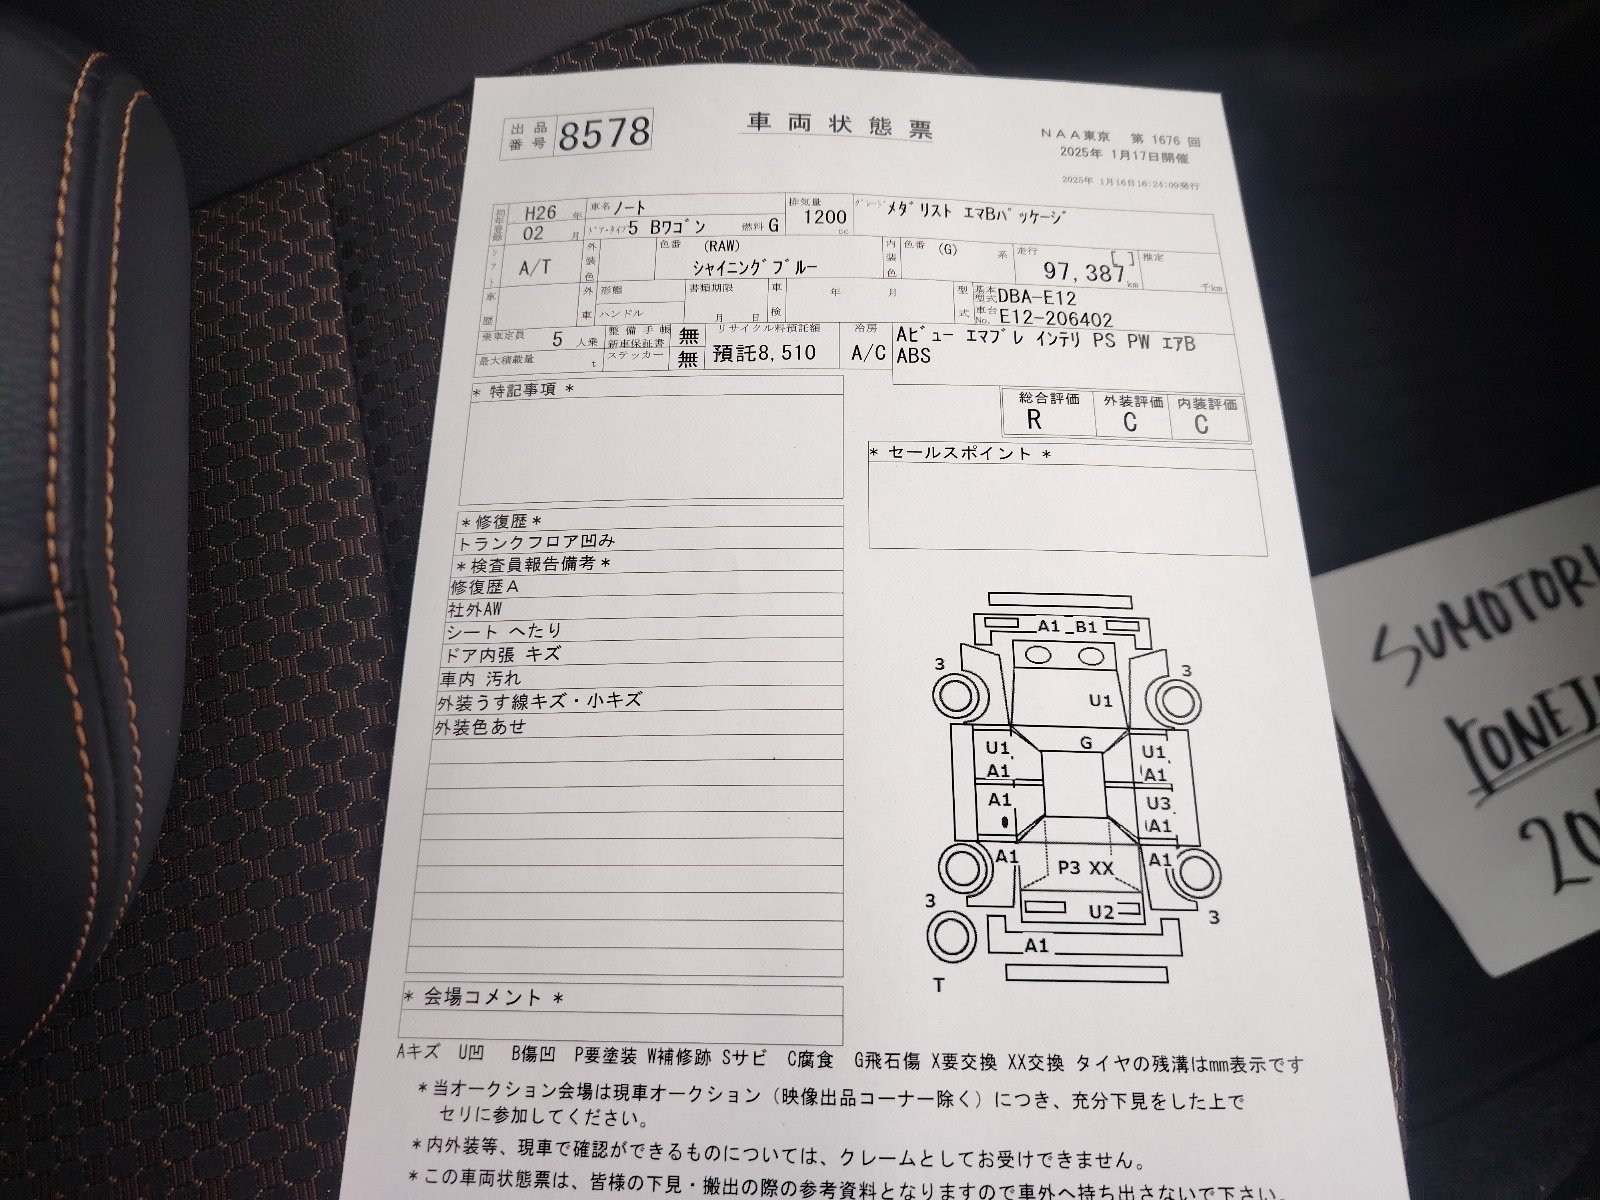 出品番号 8578
車両状態票
NAA東京 第 1676 回
2025年 1月17日開催
2025年 1月16日16:24:09発行
初年登録 H26 年 02 月
車名 ノート
ドア・タイプ 5 Bワゴン 燃料 G
排気量 1200 cc
グレード メダリスト エマBパッケージ
シフト A/T
外装色
色番 (RAW)
シャイニングブルー
内装色
色番 (G) 系
走行 [ ] 97,387 km
推定 千km
車歴
外車 形態
ハンドル
書類期限 月 日
車検 年 月
型式 基本型式 DBA-E12
車台No. E12-206402
乗車定員 5 人乗
最大積載量 t
整備手帳 新車保証書 無
ステッカー 無
リサイクル料預託額
預託8,510
冷房 A/C
Aビュー エマブレ インテリ PS PW エアB
ABS
総合評価 R
外装評価 C
内装評価 C
* 特記事項 *
* セールスポイント *
*修復歴*
トランクフロア凹み
*検査員報告備考*
修復歴A
社外AW
シート へたり
ドア内張 キズ
車内 汚れ
外装うす線キズ・小キズ
外装色あせ
A1 B1
3 3
U1
G
U1 U1
A1 A1
A1 U3
A1
A1 P3 XX A1
3 U2 3
A1
T
* 会場コメント *
Aキズ U凹 B傷凹 P要塗装 W補修跡 Sサビ C腐食 G飛石傷 X要交換 XX交換 タイヤの残溝はmm表示です
*当オークション会場は現車オークション(映像出品コーナー除く)につき、充分下見をした上で
セリに参加してください。
*内外装等、現車で確認ができるものについては、クレームとしてお受けできません。
*この車両状態票は、皆様の下見・搬出の際の参考資料となりますので車外へ持ち出さないで下さい。
SUMOTORI
YONEJ
20